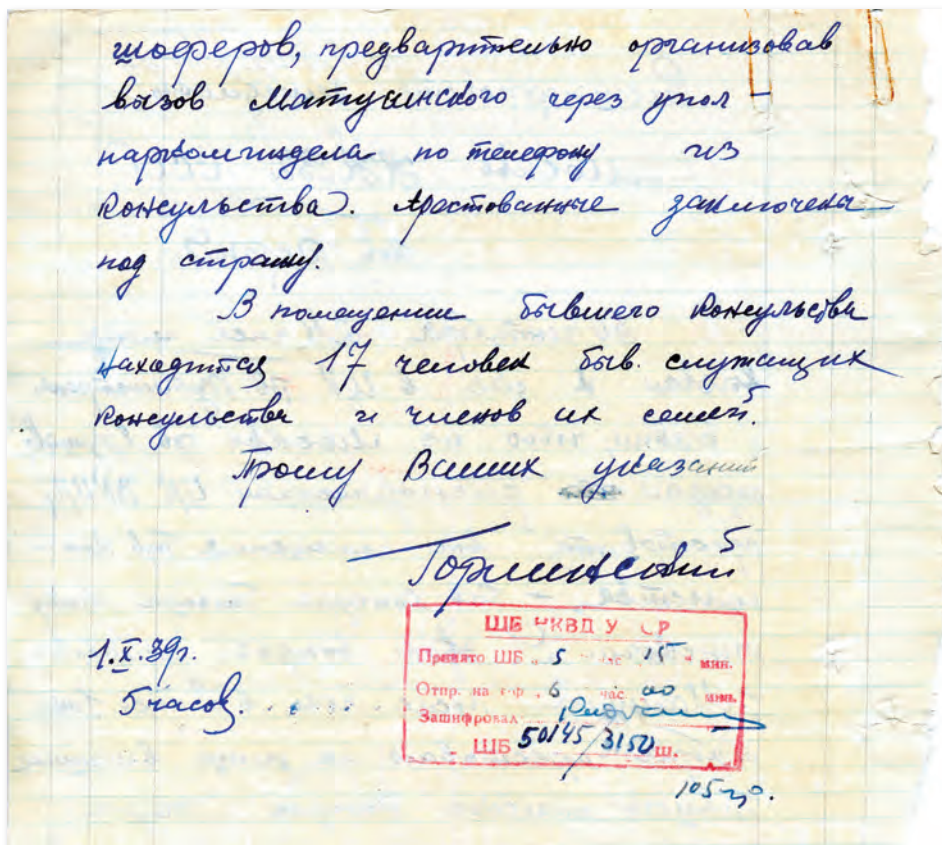 шоферов, предварительно организовав
вызов Матусинского через упол-
наркоминдела по телефону из
консульства. Арестованные заключены
под стражу.
В помещении бывшего консульства
находится 17 человек быв. служащих
консульства и членов их семей.
Прошу Ваших указаний
Горлинский
1.X.39г.
5 часов.
ШБ НКВД У СР
Принято ШБ „ 5 " час 15 " мин.
Отпр. на тф „ 6 час 00 мин.
Зашифровал
ШБ 50145/3150 ш.